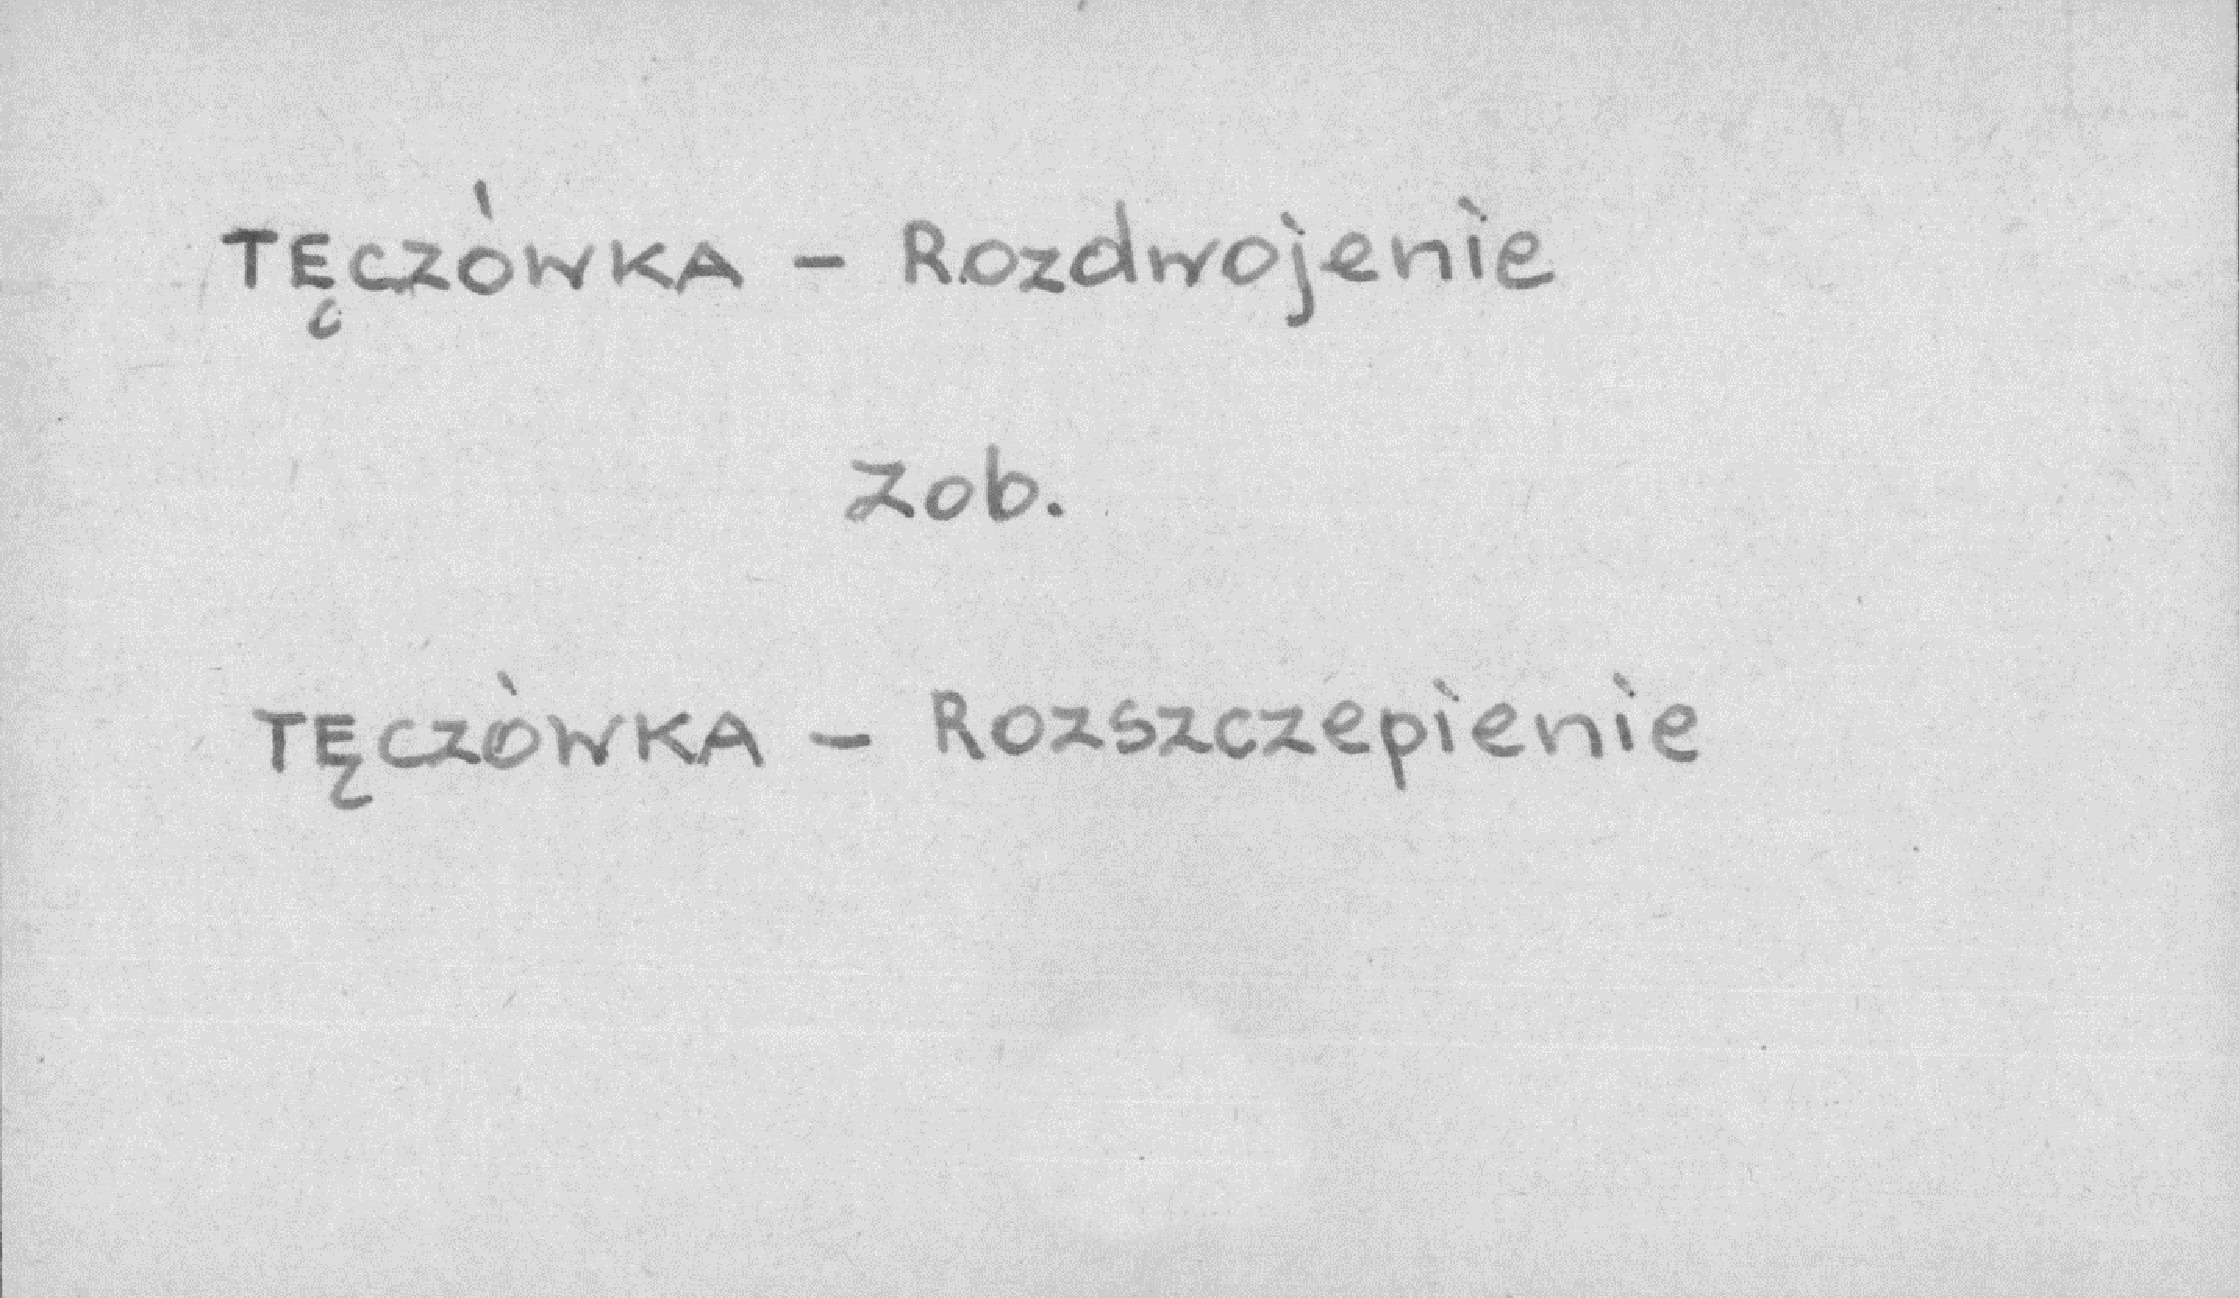 TĘCZÓWKA - Rozdwojenie
Zob.
TĘCZÓWKA - Rozszczepienie